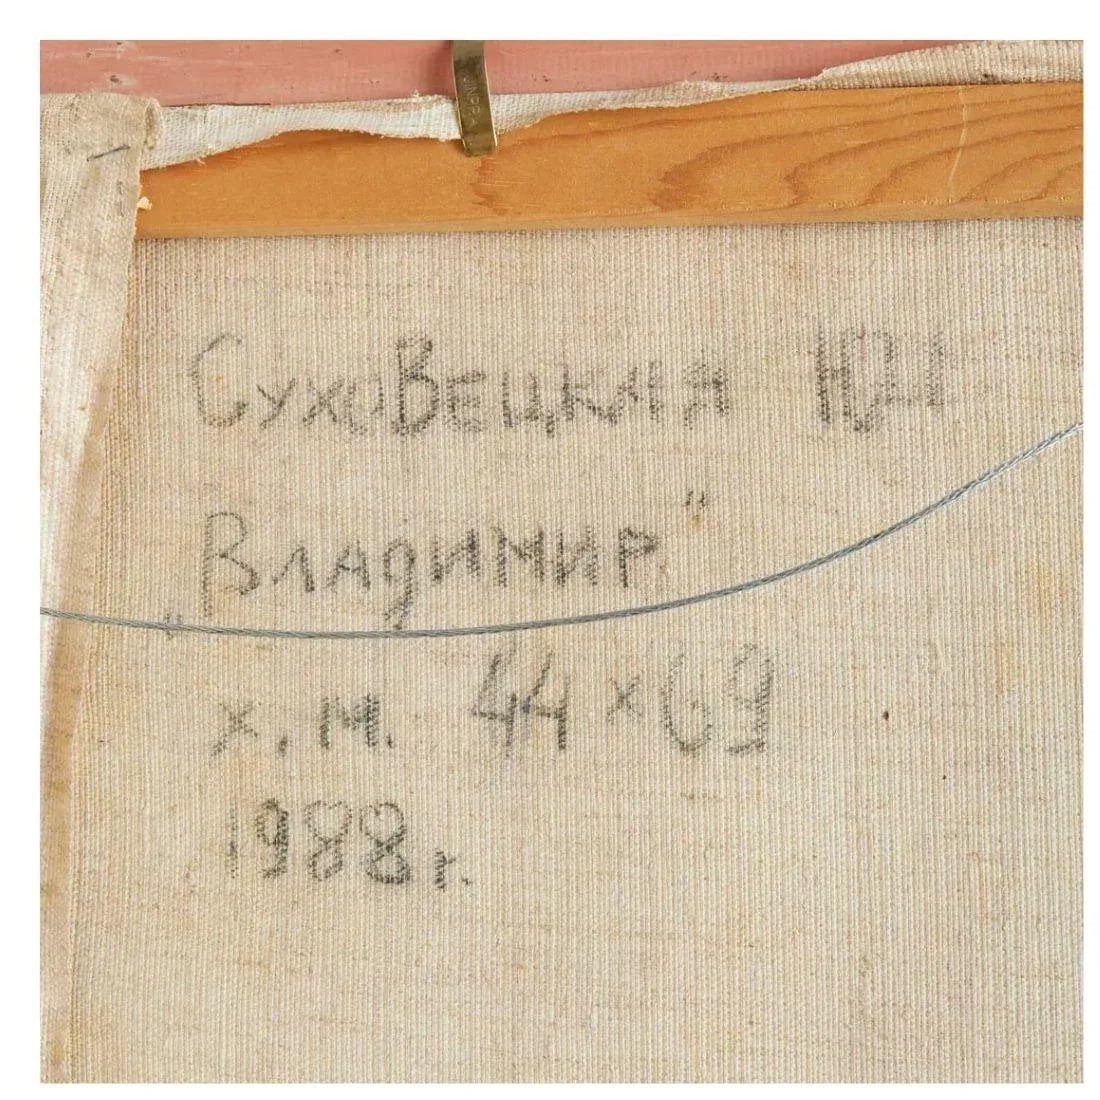 СухоВецкая
„Владимир"
х. м. 44 х 69
1988 г.